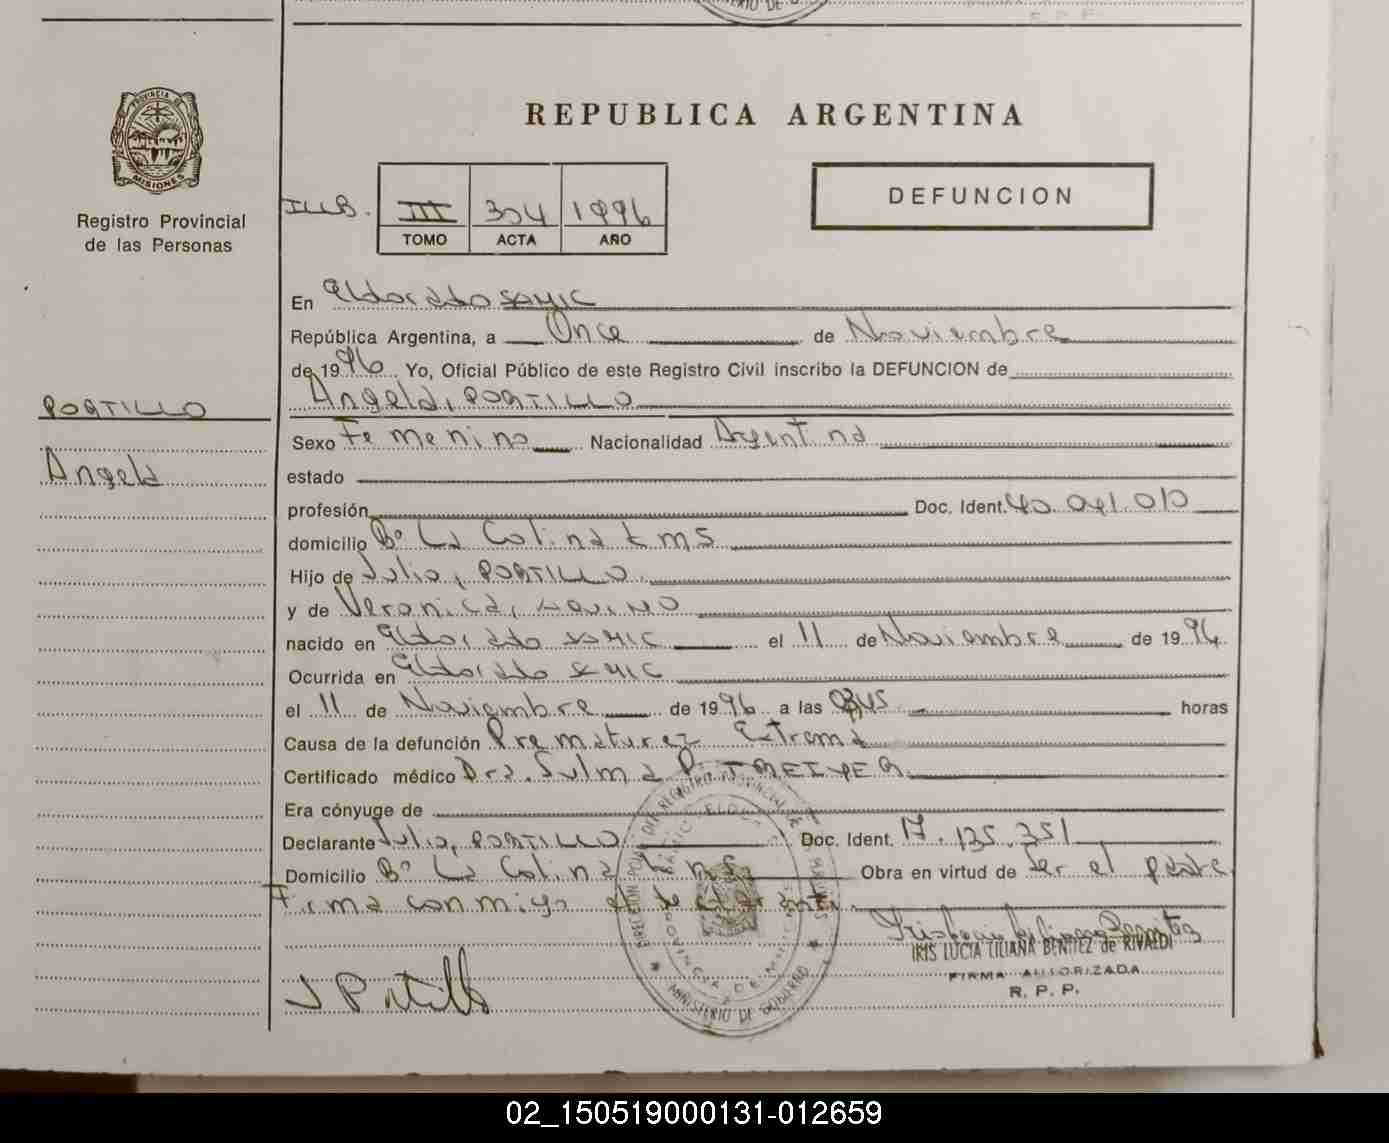 PROVINCIA DE
MISIONES
Registro Provincial
de las Personas
REPUBLICA ARGENTINA
DEFUNCION
III 304 1996
TOMO ACTA AÑO
En Eldorado SAMIC
República Argentina, a Once de Noviembre
de 1996 Yo, Oficial Público de este Registro Civil inscribo la DEFUNCION de
Angela, PORTILLO
PORTILLO
Angela
Sexo Femenino Nacionalidad Argentina
estado
profesión Doc. Ident. 40.041.010
domicilio Bº La Colina kms
Hijo de Julio, PORTILLO
y de Veronica, AQUINO
nacido en Eldorado SAMIC el 11 de Noviembre de 19
Ocurrida en Eldorado SAMIC
el 11 de Noviembre de 1996 a las horas
Causa de la defunción Prematurez Extrema
Certificado médico Dra. Sulma
Era cónyuge de
Declarante Julio, PORTILLO Doc. Ident. 17.135.351
Domicilio Bº La Colina kms Obra en virtud de Ser el padre
Firma conmigo el declarante
J Portillo
IRIS LUCIA LILIANA BENITEZ de RIVALDI
FIRMA AUTORIZADA
R. P. P.
MINISTERIO DE GOBIERNO
02_150519000131-012659